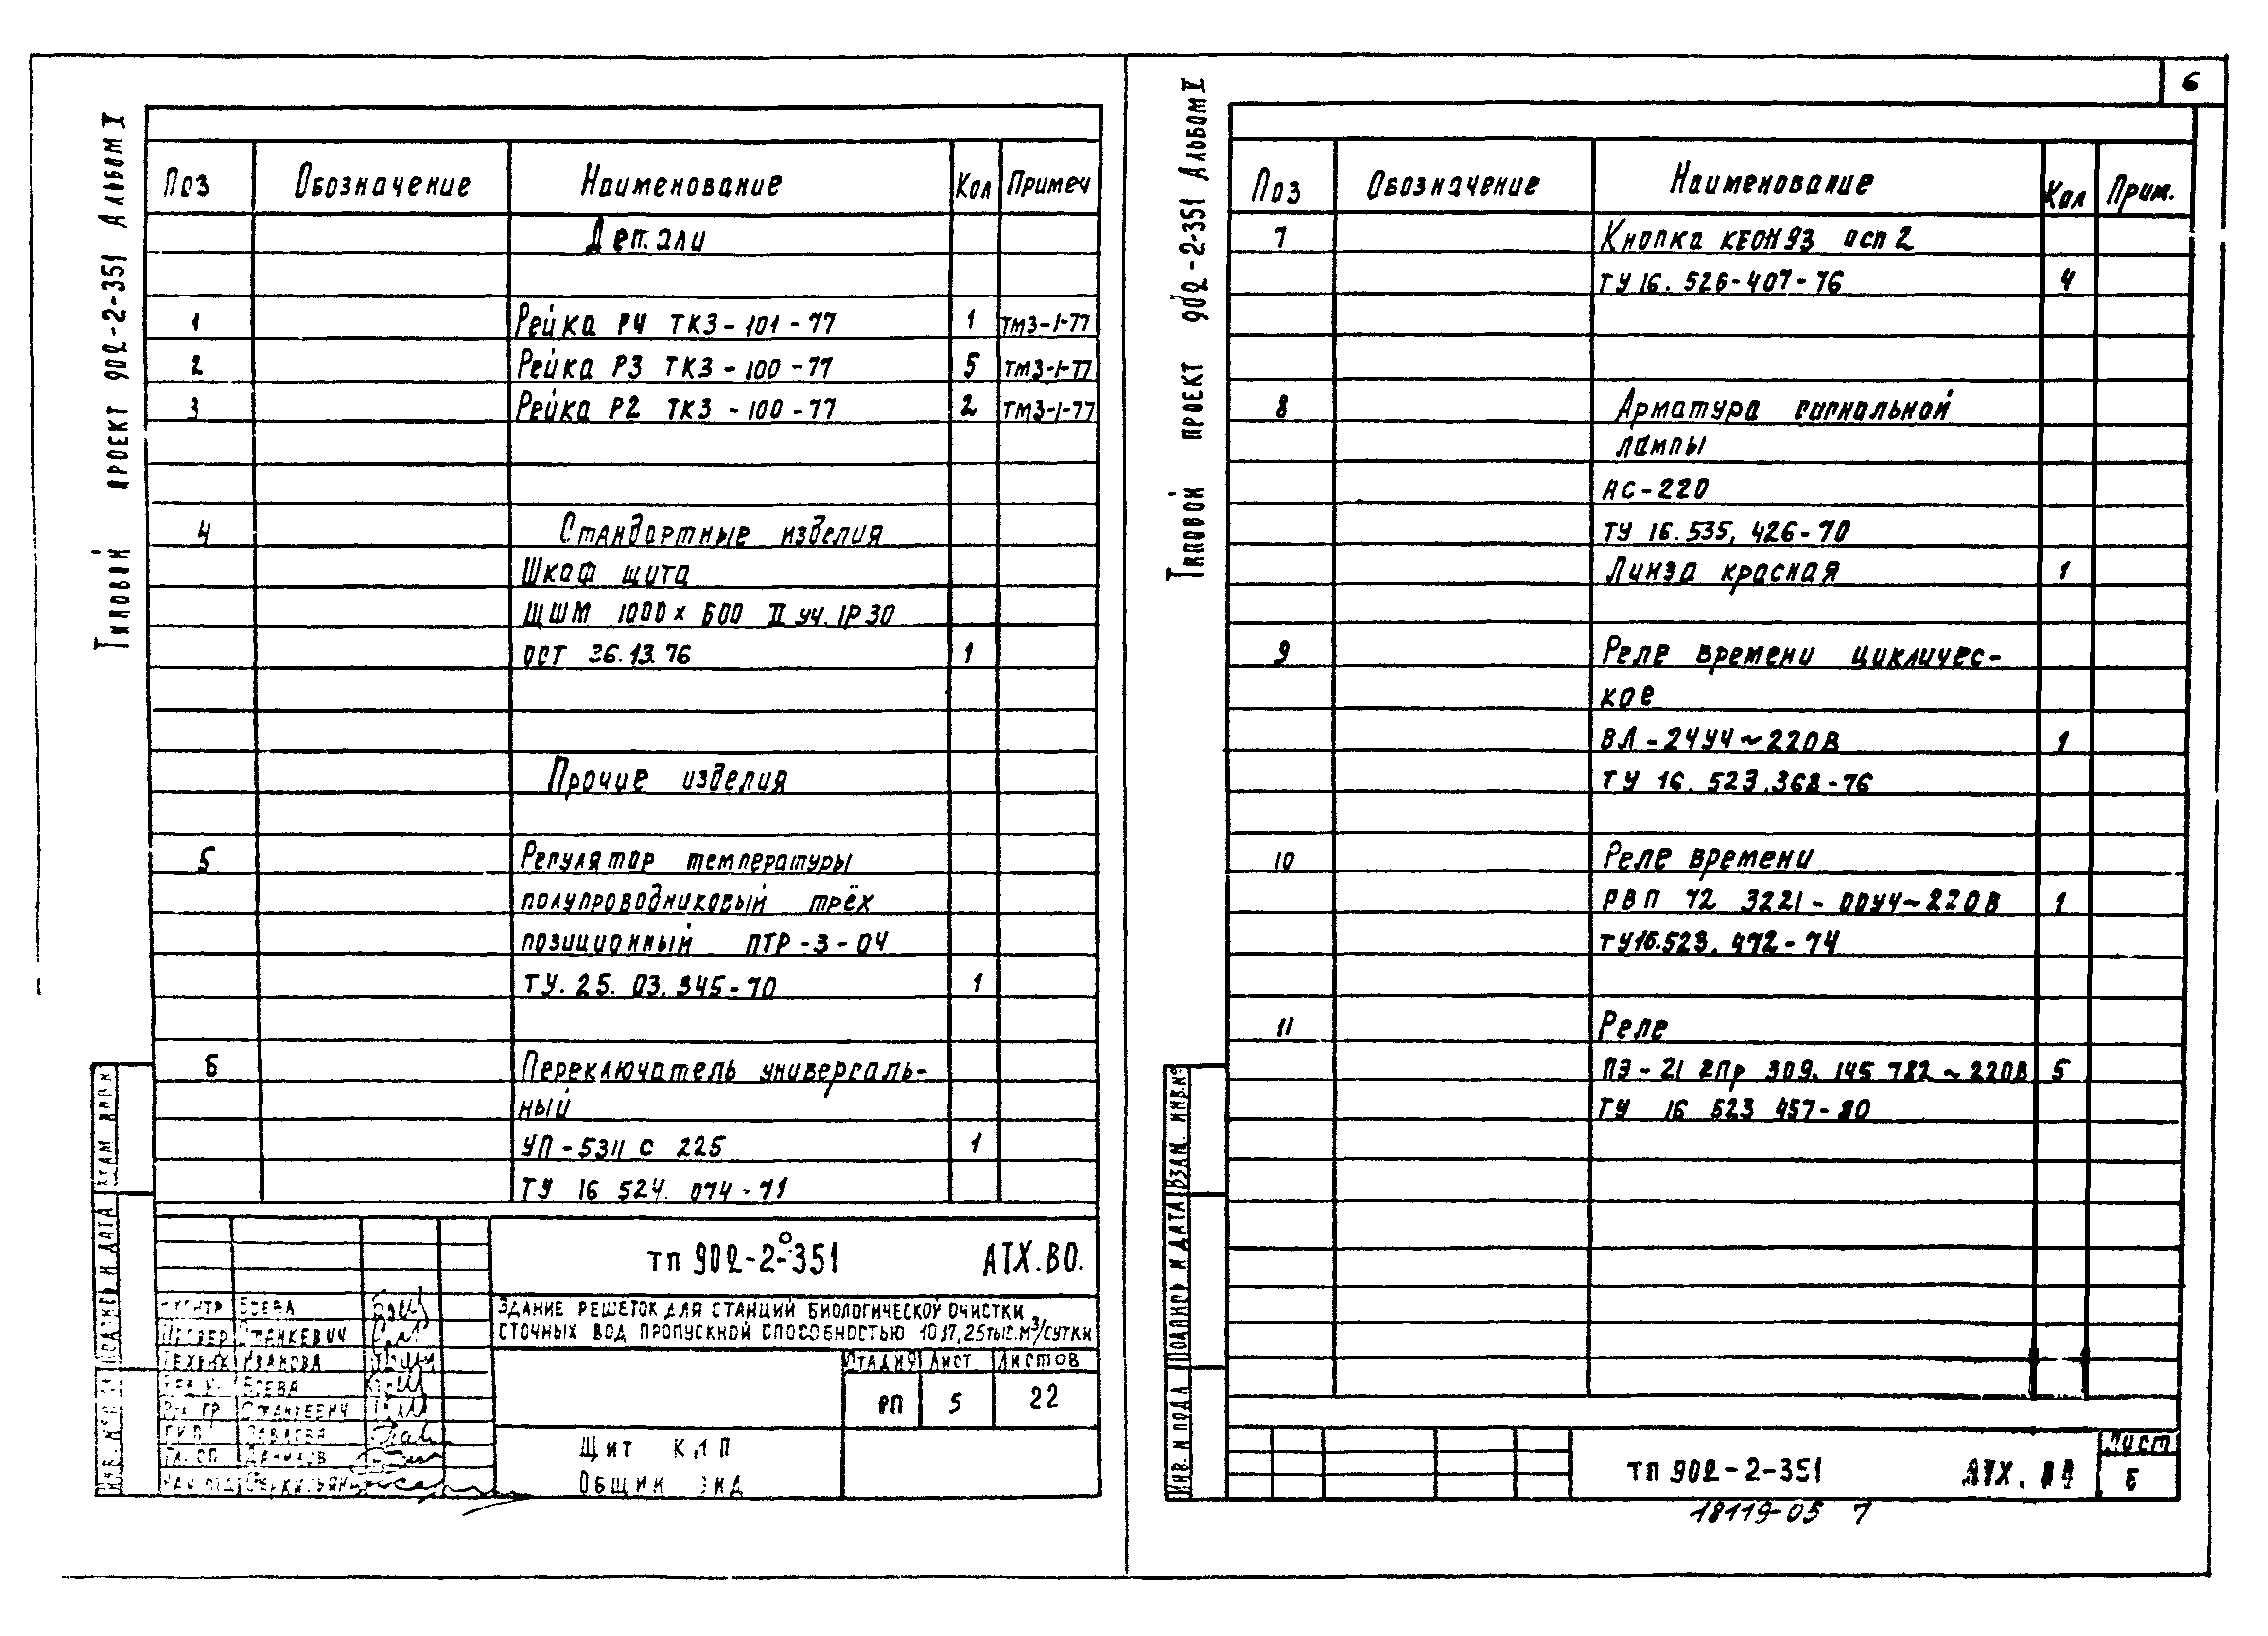 6
Типовой проект 902-2-351 Альбом V
Поз Обозначение Наименование Кол Примеч
Детали
1 Рейка Р4 ТК3-101-77 1 ТМ3-1-77
2 Рейка Р3 ТК3-100-77 5 ТМ3-1-77
3 Рейка Р2 ТК3-100-77 2 ТМ3-1-77
4 Стандартные изделия
Шкаф щита
ЩШМ 1000х600 II уч. IР30
ОСТ 36.13.76 1
Прочие изделия
5 Регулятор температуры
полупроводниковый трёх
позиционный ПТР-3-04
ТУ. 25. 03. 345-70 1
6 Переключатель универсаль-
ный
УП-5311 с 225 1
ТУ 16 524. 074-71
тп 902-2-351 АТХ.ВО.
Здание решеток для станций биологической очистки
сточных вод пропускной способностью 10,17,25 тыс.м³/сутки
Н.контр Боева
Провер Станкевич
Техник Иванова
Боева
Рук гр Станкевич
ГИП Павлова
Гл. сп Данилов
Нач отд
Стадия Лист Листов
РП 5 22
Щит КИП
Общий вид
Взам инв.N
Подпись и дата
Инв. N подл
Типовой проект 902-2-351 Альбом V
Поз Обозначение Наименование Кол Прим.
7 Кнопка КЕ01У93 исп 2
ТУ 16. 526-407-76 4
8 Арматура сигнальной
лампы
АС-220
ТУ 16.535, 426-70
Линза красная 1
9 Реле времени цикличес-
кое
ВЛ-24У4~220В 1
ТУ 16. 523.368-76
10 Реле времени
РВП 72 3221-00У4~220В 1
ТУ16.523, 472-74
11 Реле
ПЭ-21 2Пр 309. 145 782~220В 5
ТУ 16 523 457-80
Взам. инв.N°
Подпись и дата
Инв. N подл
тп 902-2-351 АТХ. ВО
Лист
6
18119-05 7